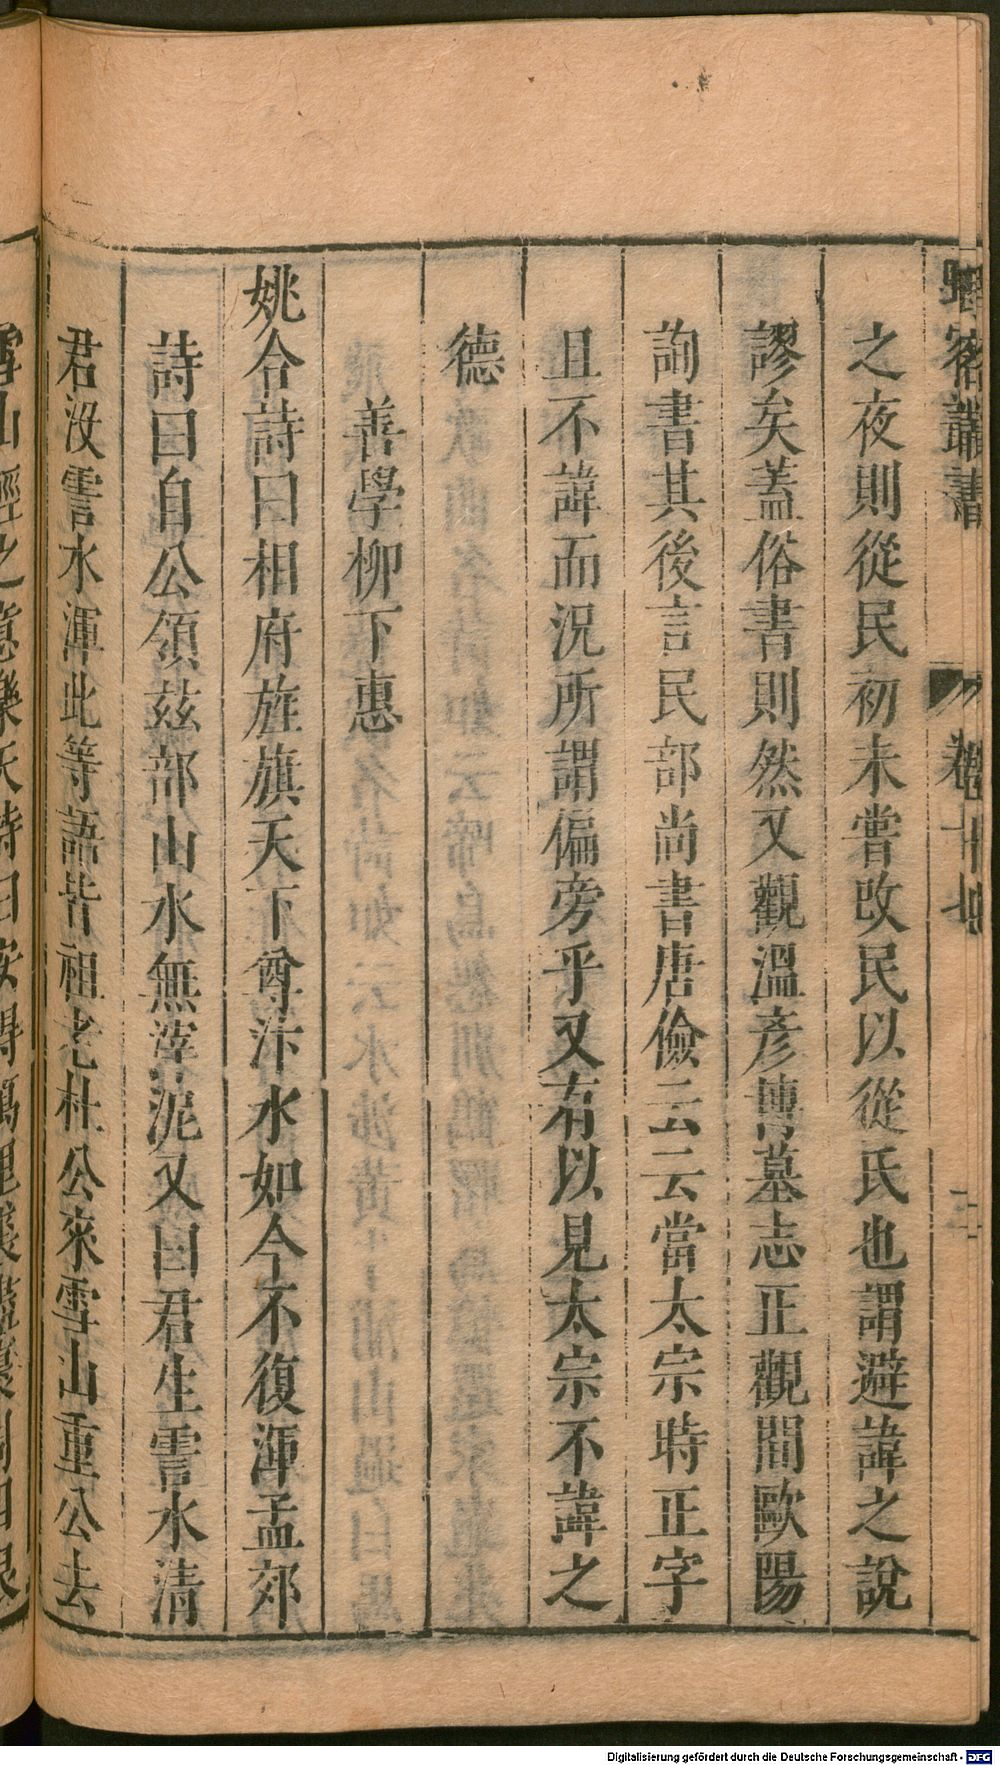 野客叢書 卷
之夜則從民初未嘗改民以從氏也謂避諱之說
謬矣蓋俗書則然又觀溫彥博墓志正觀間歐陽
詢書其後言民部尚書唐儉云云當太宗時正字
且不諱而況所謂偏旁乎又有以見太宗不諱之
德
善學柳下惠
姚合詩曰相府旌旗天下尊汴水如今不復渾孟郊
詩曰自公領茲部山水無滓泥又曰君生霅水清
君沒霅水渾此等語皆祖老杜公來雪山重公去
雪山輕之意樂天詩曰安得萬里裘蓋裹周四垠
Digitalisierung gefördert durch die Deutsche Forschungsgemeinschaft - DFG